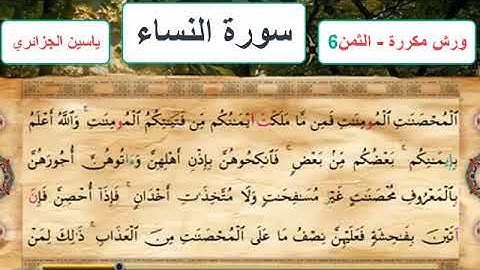 ورش مكررة - الثمن6
سورة النساء
ياسين الجزائري
اَ۬لْمُحْصَنَٰتِ اِ۬لْمُومِنَٰتِ فَمِن مَّا مَلَكَتَ اَيْمَٰنُكُم مِّن فَتَيَٰتِكُمُ اُ۬لْمُومِنَٰتِۖ وَاللَّهُ أَعْلَمُ
بِإِيمَٰنِكُمۖ بَعْضُكُم مِّنۢ بَعْضٖۖ فَانكِحُوهُنَّ بِإِذْنِ أَهْلِهِنَّ وَءَاتُوهُنَّ أُجُورَهُنَّ
بِالْمَعْرُوفِ مُحْصَنَٰتٍ غَيْرَ مُسَٰفِحَٰتٖ وَلَا مُتَّخِذَٰتِ أَخْدَانٖۖ فَإِذَا أُحْصِنَّ فَإِنَ
اَتَيْنَ بِفَٰحِشَةٖ فَعَلَيْهِنَّ نِصْفُ مَا عَلَى اَ۬لْمُحْصَنَٰتِ مِنَ اَ۬لْعَذَابِۖ ذَٰلِكَ لِمَنْ